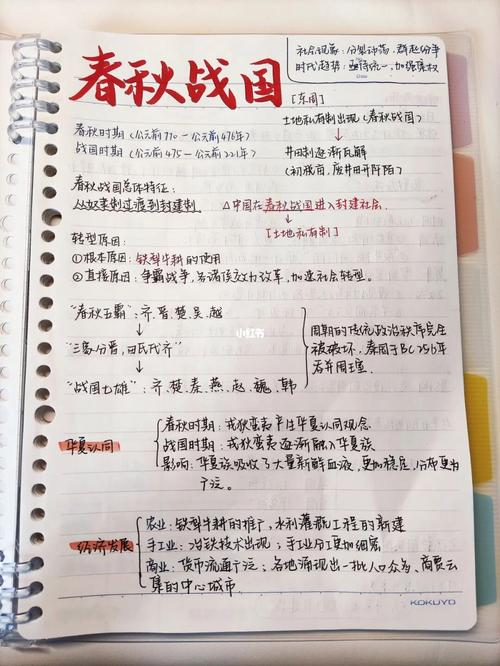 社会现象：分裂动荡，群起纷争
时代趋势：坚持统一，加强集权
春秋战国
[东周]
土地私有制出现（春秋战国）
春秋时期（公元前770—公元前476年）
战国时期（公元前475—公元前221年）
井田制逐渐瓦解
（初税亩，废井田开阡陌）
春秋战国总体特征：
从奴隶制过渡到封建制
△中国在春秋战国进入封建社会
[土地私有制]
转型原因：
①根本原因：铁犁牛耕的使用
②直接原因：争霸战争，各诸侯致力改革，加速社会转型。
"春秋五霸"：齐、晋、楚、吴、越
"三家分晋，田氏代齐"
"战国七雄"：齐、楚、秦、燕、赵、魏、韩
周朝的传统政治秩序完全
被破坏，秦国于BC256年
吞并周王室
小红书
华夏认同
春秋时期：戎狄蛮夷产生华夏认同观念
战国时期：戎狄蛮夷逐渐融入华夏族
影响：华夏族吸收了大量新鲜血液，更加稳定，分布更为
广泛。
经济发展
农业：铁犁牛耕的推广，水利灌溉工程的新建
手工业：冶铁技术出现；手工业分工更加细密
商业：货币流通广泛；各地涌现出一批人口众多、商贾云
集的中心城市
KOKUYO